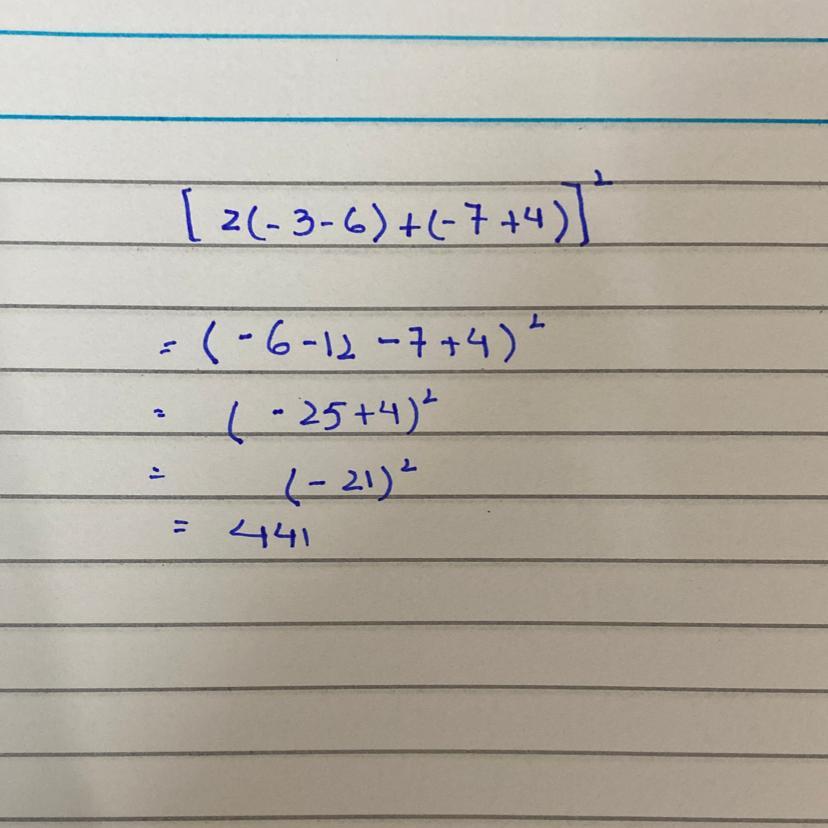 [ 2(-3-6)+(-7+4)]²
= (-6-12-7+4)²
= (-25+4)²
= (-21)²
= 441